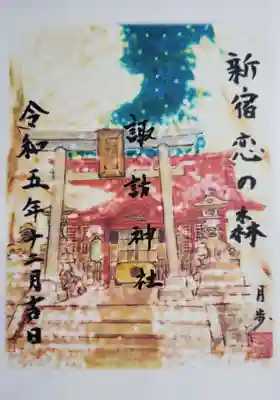 新宿恋の森
月歩
諏訪神社
令和五年十二月吉日